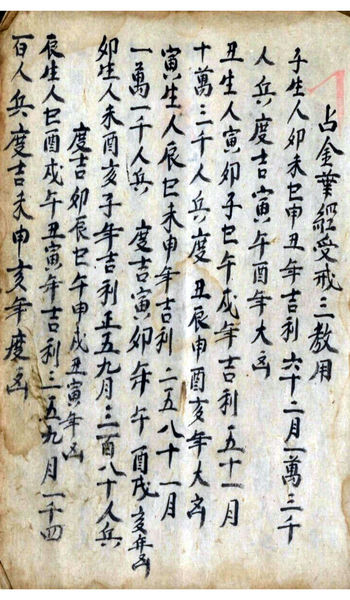 占金葉經受戒三教用
子生人卯未巳申丑年吉利六十二月一萬三千
人兵度吉寅午酉年大凶
丑生人寅卯子巳午戌年吉利五十一月
十萬三千人兵度丑辰申酉亥年大凶
寅生人辰巳未申年吉利二五八十一月
一萬一千人兵度吉寅卯年午酉戌亥年凶
卯生人未酉亥子年吉利正五九月三百八十人兵
度吉卯辰巳午申戌丑寅年凶
辰生人巳酉戌午丑寅年吉利三五九月一千四
百人兵度吉未申亥年度凶